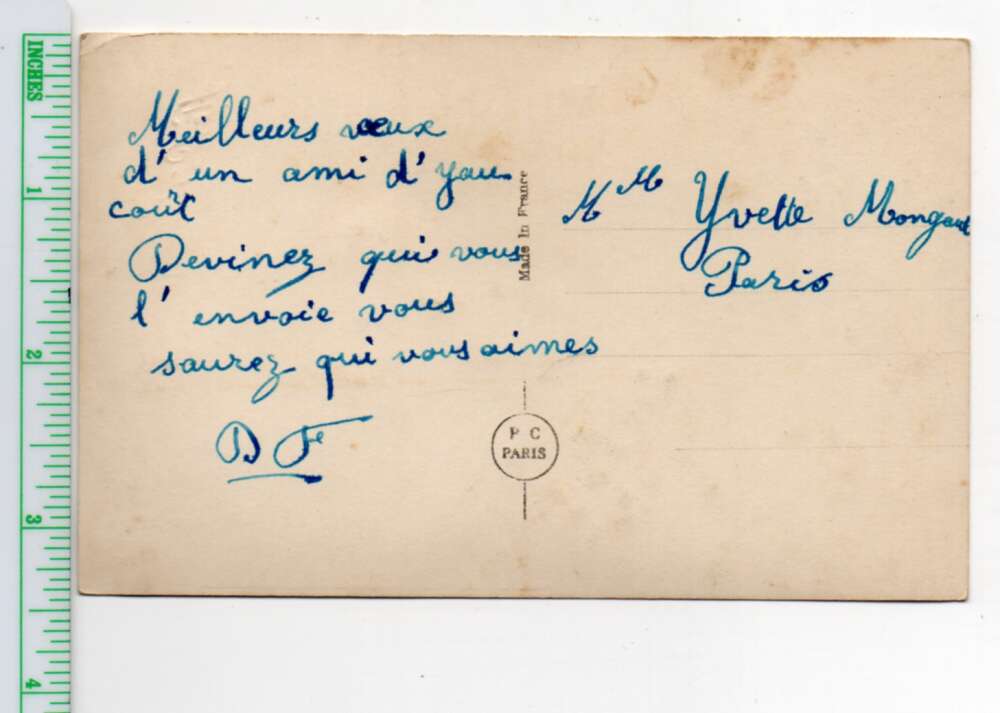 Meilleurs vœux
d'un ami d'yau
coût
Devinez qui vous
l'envoie vous
saurez qui vous aimes
D F
Made in France
P C
PARIS
Yvette
Paris
INCHES
1
2
3
4